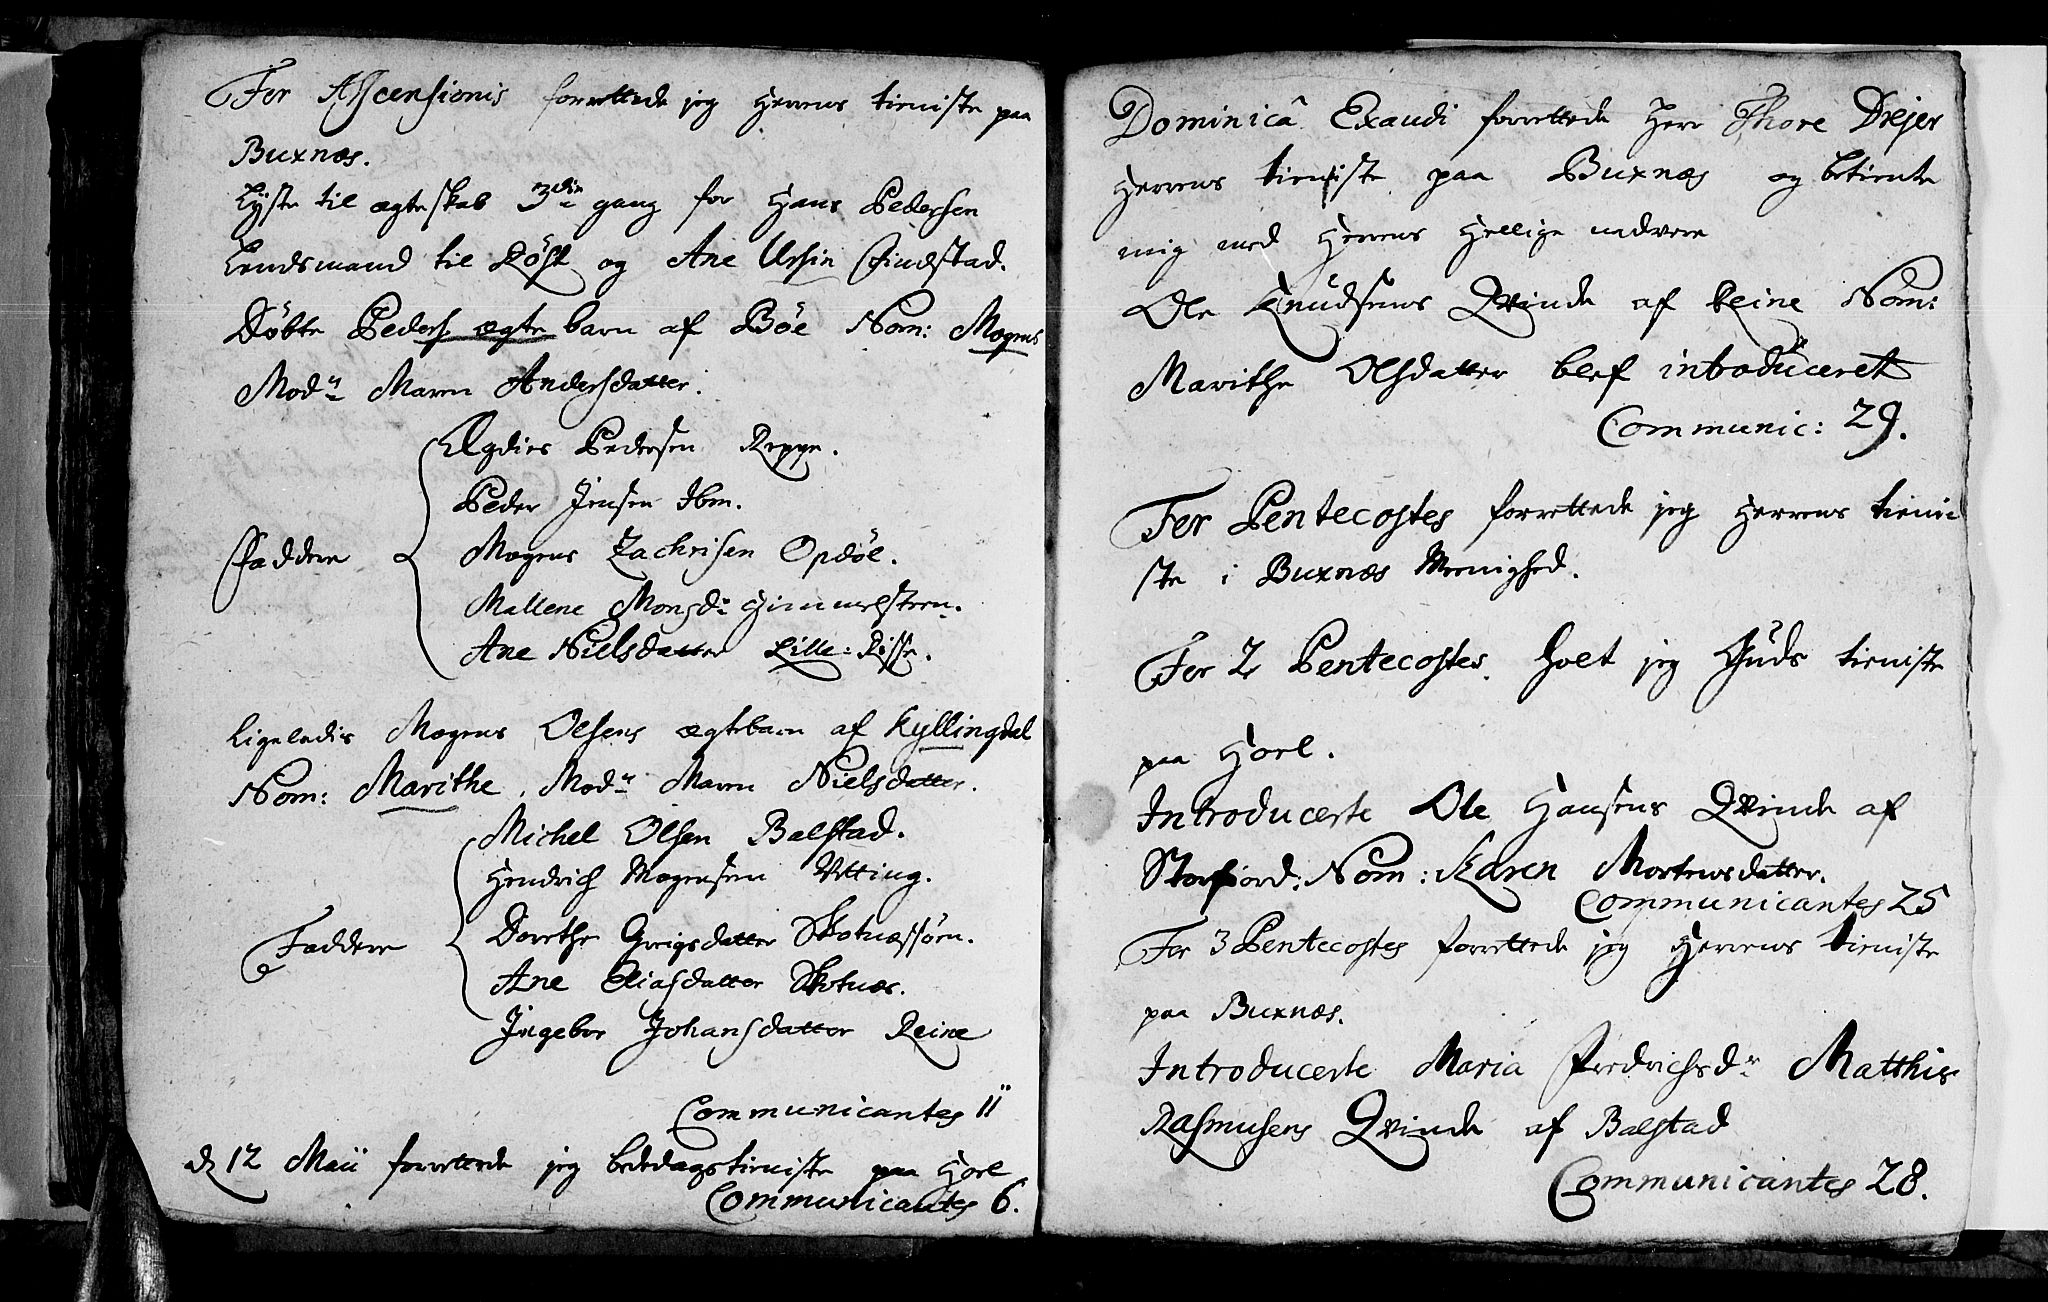 Fer Ascensionis forrettede jeg Herrens tieniste paa
Buxnæs.
Lyste til ægteskab 3die gang for Hans Pedersen
Lendsmand til Röst og Ane Ursin Finestad.
Döbte Peders ægte barn af Böe Nom: Mogens
Modn Maren Andersdatter.
Ægdies Pedersen Reppe.
Peder Jensen Ibm.
Faddere Mogens Zachrisen Opdöl.
Mallene Monsdr Gimmelsteen.
Ane Nielsdatter Lille: Risse.
Ligeledis Mogens Olsens ægtebarn af Kyllingdal
Nom: Marithe. Modn Maren Nielsdatter.
Michel Olsen Balstad.
Hendrich Mogensen Utting.
Faddere Dorethe Gregisdatter Skotnæssöen.
Ane Eliasdatter Skotnæs.
Ingebor Johansdatter Reine
Communicantes 11
d 12 Maii forrettede jeg bededagstieniste paa Hoel
Communicantes 6.
Dominicâ Exaudi forrettede Herr Thore Drejer
Herrens tieniste paa Buxnæs og betiente
mig med Herrens Hellige nadvere
Ole Knudsens Qvinde af Reine Nom:
Marithe Olsdatter blef introduceret
Communic: 29.
Fer Pentecostes forrettede jeg Herrens tieni
ste i Buxnæs Menighed.
Fer 2 Pentecostes holt jeg Guds tieniste
paa Hoel.
Introducerte Ole Hansens Qvinde af
Storfiord. Nom: Karen Mortensdatter.
Communicantes 25
Fer 3 Pentecostes forrettede jeg Herrens tieniste
paa Buxnæs.
Introducerte Maria Fredrichsdr Matthis
Rasmusens Qvinde af Balstad
Communicantes 28.